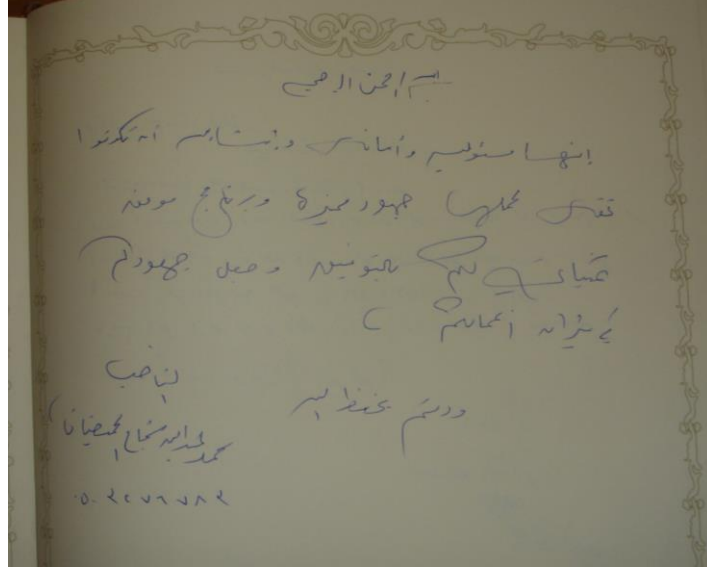 بسم الله الرحمن الرحيم
إنها مسئولية وأمانة وإن شاء الله أن تكونوا
تحملها جهود مميزة وبرنامج موفق
تمنياتي لكم بالتوفيق وجعل جهودكم
في ميزان أعمالكم
ودمتم بحفظ الله
محمد شجاع